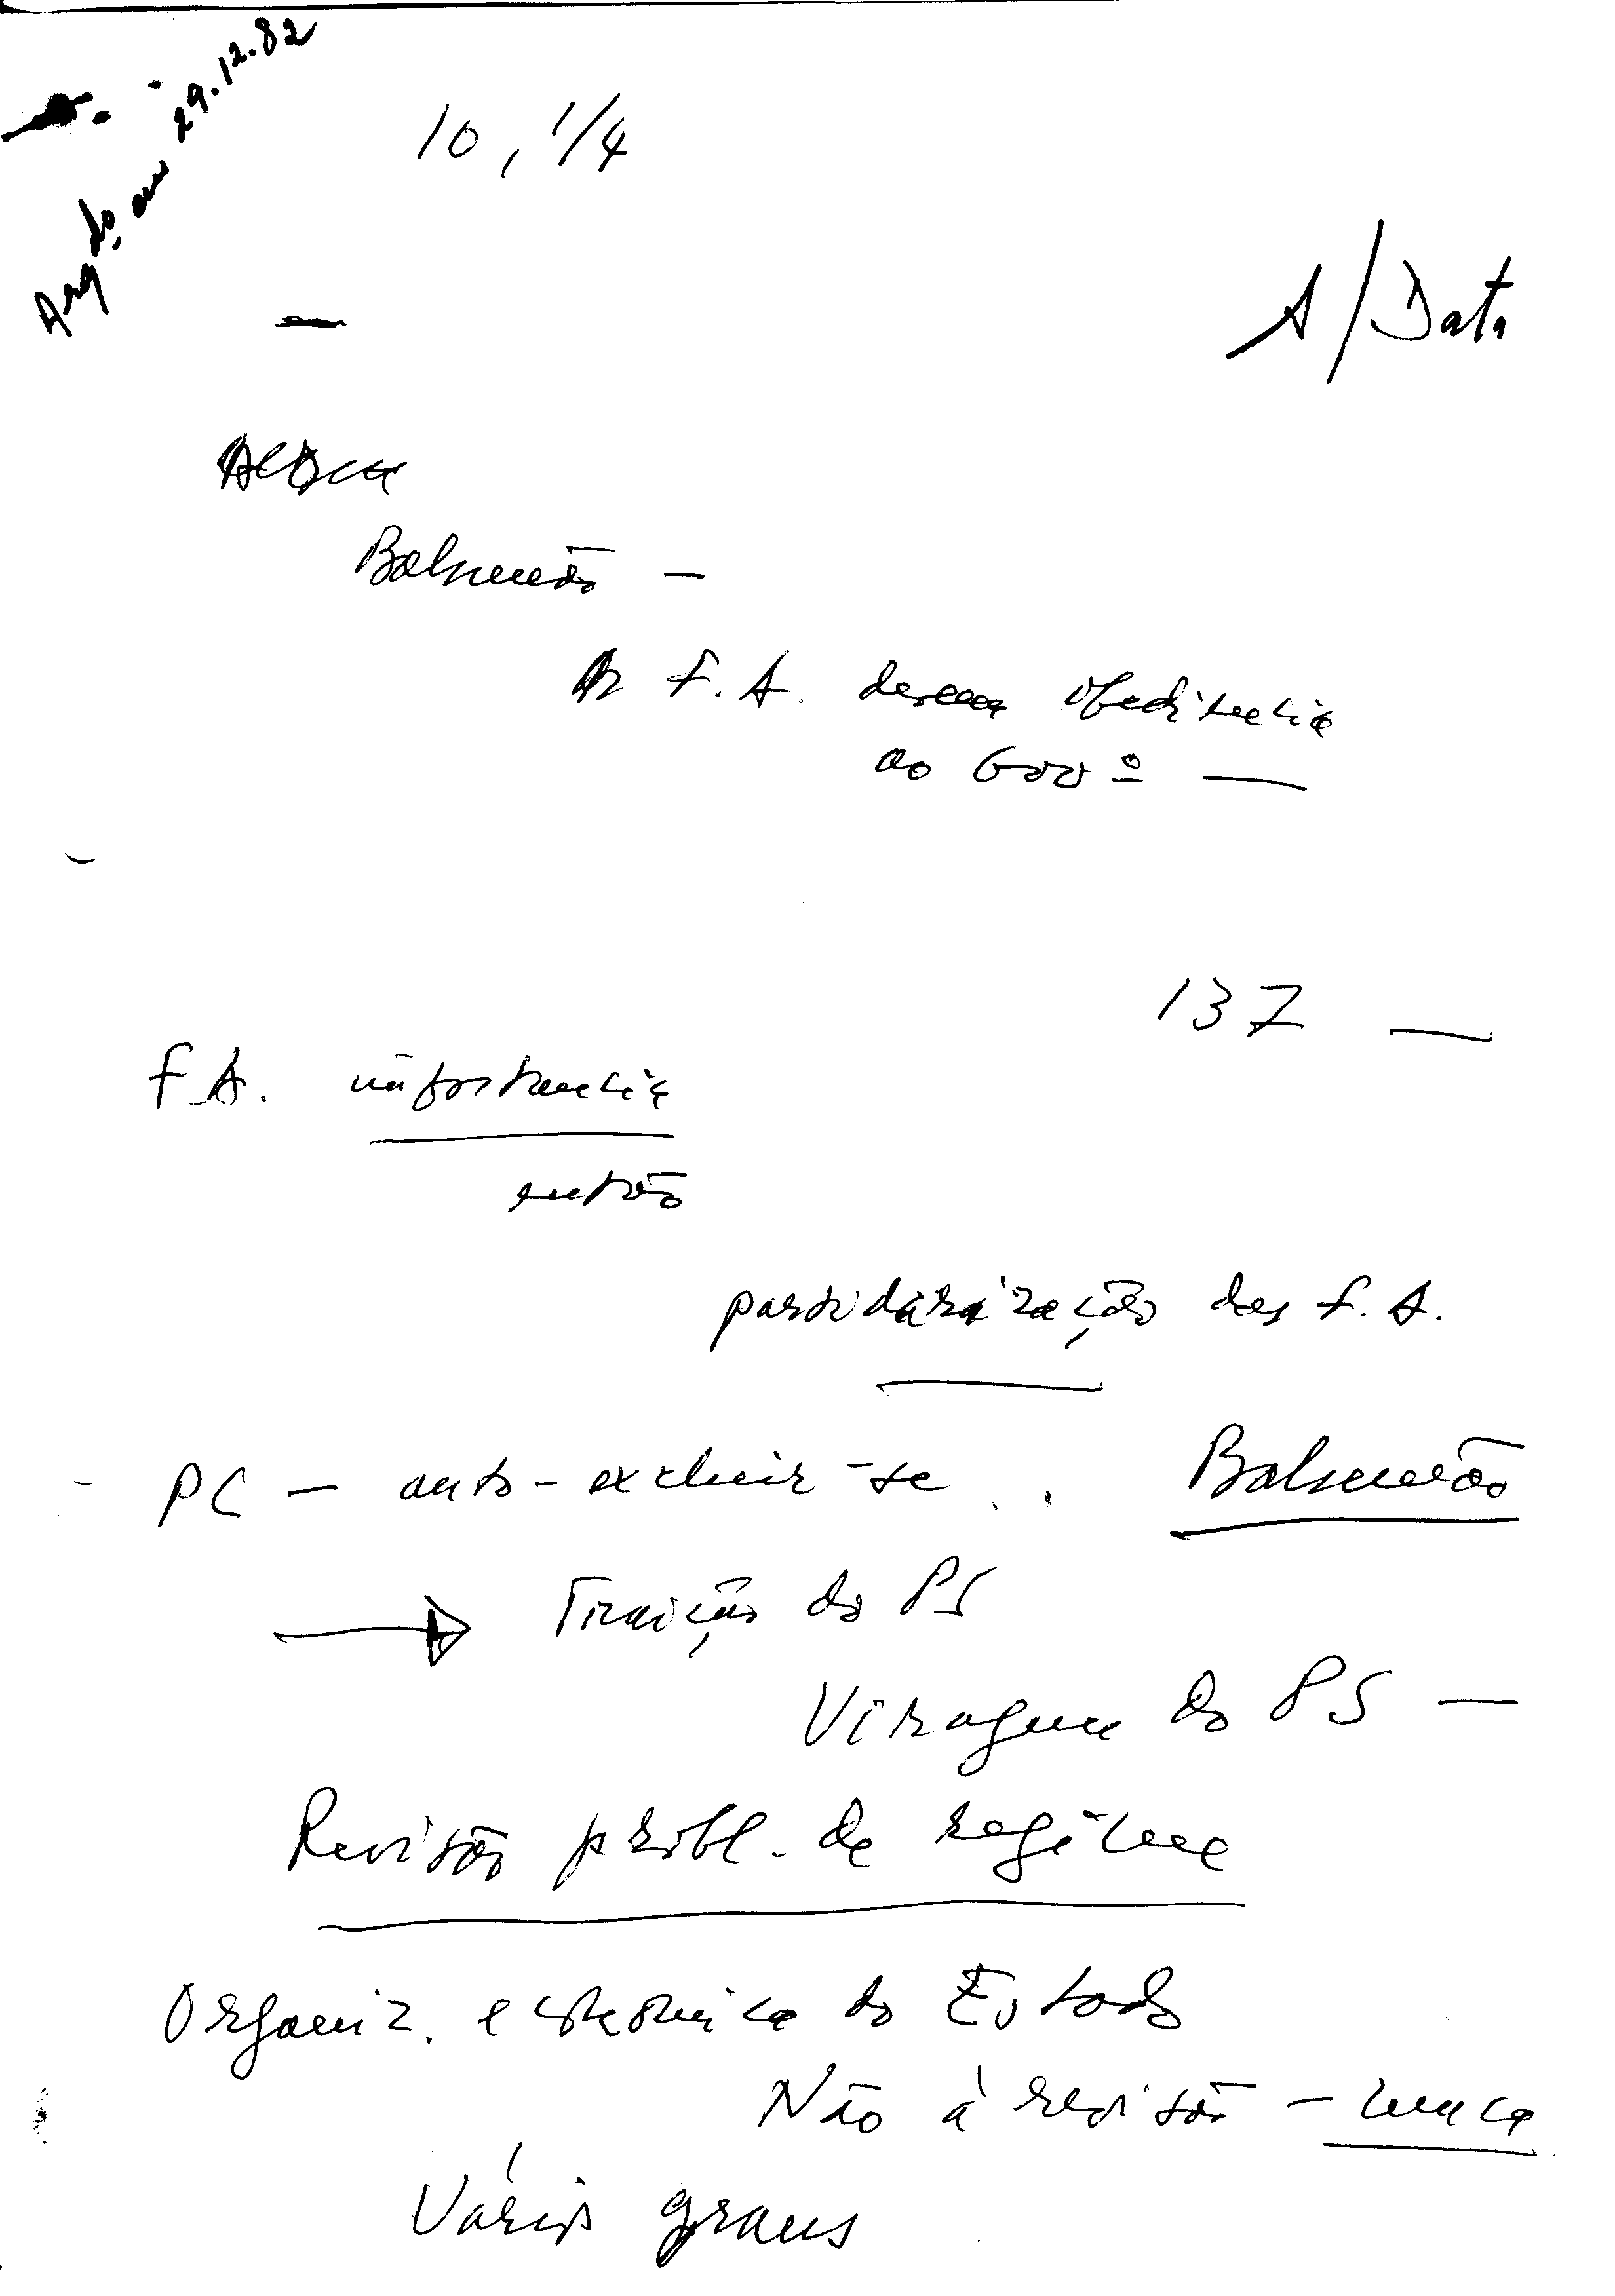 Arq.do em 29.12.82
10, 1/4
A/Data
Balsemão —
As F.A. devem obediência
ao Govº —
137 —
F.A. importância
então
partidarização das F.A.
- PC — auto-excluir-se .. Balsemão
Traição do PS
Viragem do PS —
Revisão probl. de regime
Organiz. económica do Estado
Não à revisão — nunca
Vários graus